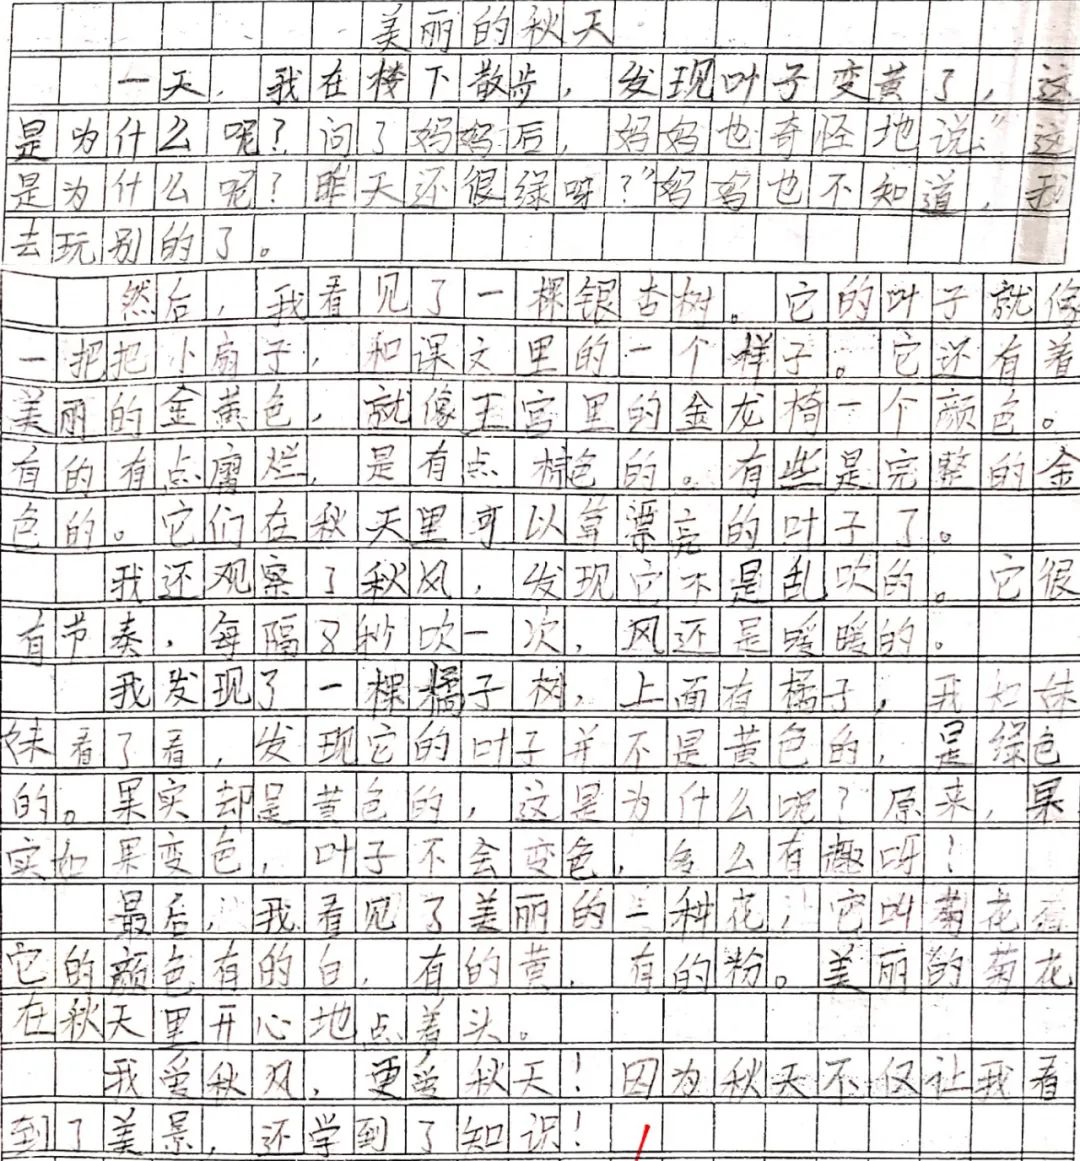 美丽的秋天
一天，我在楼下散步，发现叶子变黄了，这
是为什么呢？问了妈妈后，妈妈也奇怪地说：“这
是为什么呢？昨天还很绿呀？”妈妈也不知道，我
去玩别的了。
然后，我看见了一棵银杏树。它的叶子就像
一把把小扇子，和课文里的一个样子。它还有着
美丽的金黄色，就像王宫里的金龙椅一个颜色。
有的有点腐烂，是有点棕色的。有些是完整的金
色的。它们在秋天里可以算漂亮的叶子了。
我还观察了秋风，发现它不是乱吹的。它很
有节奏，每隔8秒吹一次，风还是暖暖的。
我发现了一棵橘子树，上面有橘子，我和妹
妹看了看，发现它的叶子并不是黄色的，是绿色
的。果实却是黄色的，这是为什么呢？原来，果
实如果变色，叶子不会变色，多么有趣呀！
最后，我看见了美丽的一种花，它叫菊花
它的颜色有的白，有的黄，有的粉。美丽的菊花
在秋天里开心地点着头。
我爱秋风，更爱秋天！因为秋天不仅让我看
到了美景，还学到了知识！